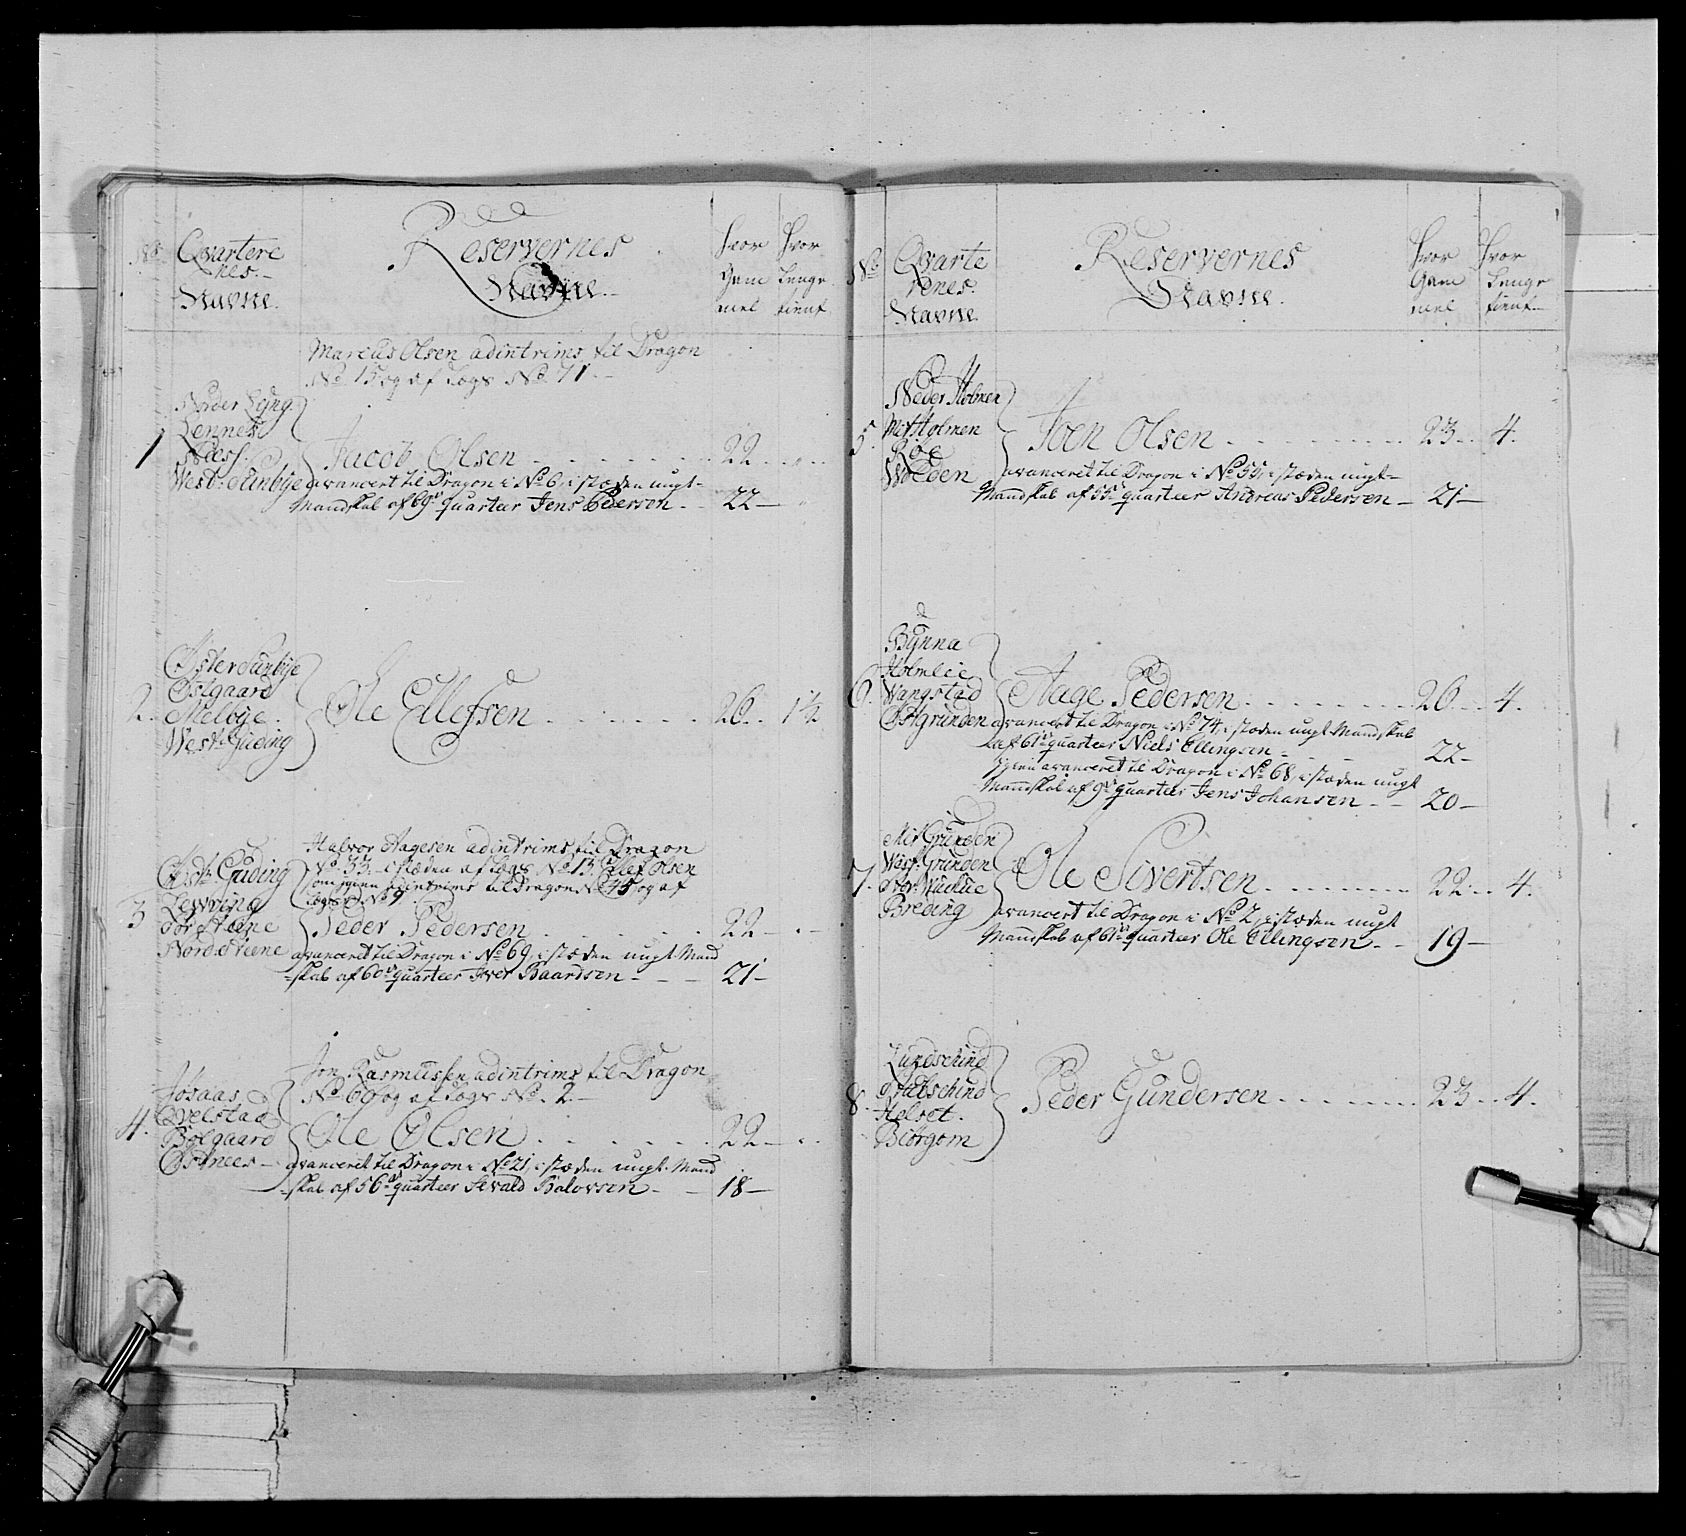 No
Qvartere
nes
Navne.
Reservernes
Navne.
hvor
Gam
mel
hvor
Lenge
tient
Marcus Olsen adintrims til Dragon
No 15 og af Logs No 71.
Neder Leyng
Lennes
Nees
West: Sunbÿe
1
Jacob Olsen 22
avancert til Dragon i No 6, i stæden ungt
Mandskab af 69de quarteer Jens Pedersen 22
Øster Sunbÿe
Østgaard
Melbÿe
West: Guding
2.
Ole Ellefsen 26 1½
Halvor Aagesen adintrims til Dragon
No 33. i stæden af Logs No 13. Ellef Olsen
som igien adintrims til Dragon No 45 og af
Logs No 9
Øst: Guding
Levring
Nord: Steene
3
Peder Pedersen 22
avanceret til Dragon i No 69, i stæden ungt Mand
skab af 60de quarteer Iver Baardsen 21
Jon Rasmussen adintrims til Dragon
No 66 og af Logs No 2
Josaas
Qvelstad
Bolgaard
Østnees
4.
Ole Olsen 22
avanceret til Dragon i No 21, i stæden ungt Mand
skab af 56de quarteer Sivald Halvorsen 18
No
Qvarte
renes
Navne
Reservernes
Navne.
hvor
Gam
mel
hvor
Lenge
tient
Neder Holmen
Mit Holmen
Roe
Wolden
5.
Joen Olsen 23 4.
avanceret til Dragon i No 54, i stæden ungt
Mandskab af 55de quarteer Andreas Pedersen 21
Bÿnna
Holmlie
Wangstad
Østgrunden
6.
Aage Pedersen 26 4.
avancert til Dragon i No 74, i stæden ungt Mandskab
af 61de quarteer Niels Ellingsen 22
Igien avanceret til Dragon i No 68, i stæden ungt
Mandskab af 9de quarteer Jens Johansen 20
Mit Grunden
West: Grunden
Breding
7.
Ole Sivertsen 22 4.
avancert til Dragon i No 2, i stæden ungt
Mandskab af 61de quarteer Ole Ellingsen 19
Lundschind
Helset.
Biørgom
8.
Peder Gundersen 23 4.